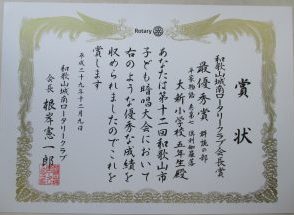 Rotary
賞状
和歌山城南ロータリークラブ会長賞
最優秀賞 群読の部
平家物語 巻第七 倶利伽羅落
大新小学校 五年生殿
あなたは第十二回和歌山市
子ども暗唱大会において
右のような優秀な成績を
収められましたのでこれを
賞します
平成二十九年十二月九日
和歌山城南ロータリークラブ
会長 根岸憲一郎